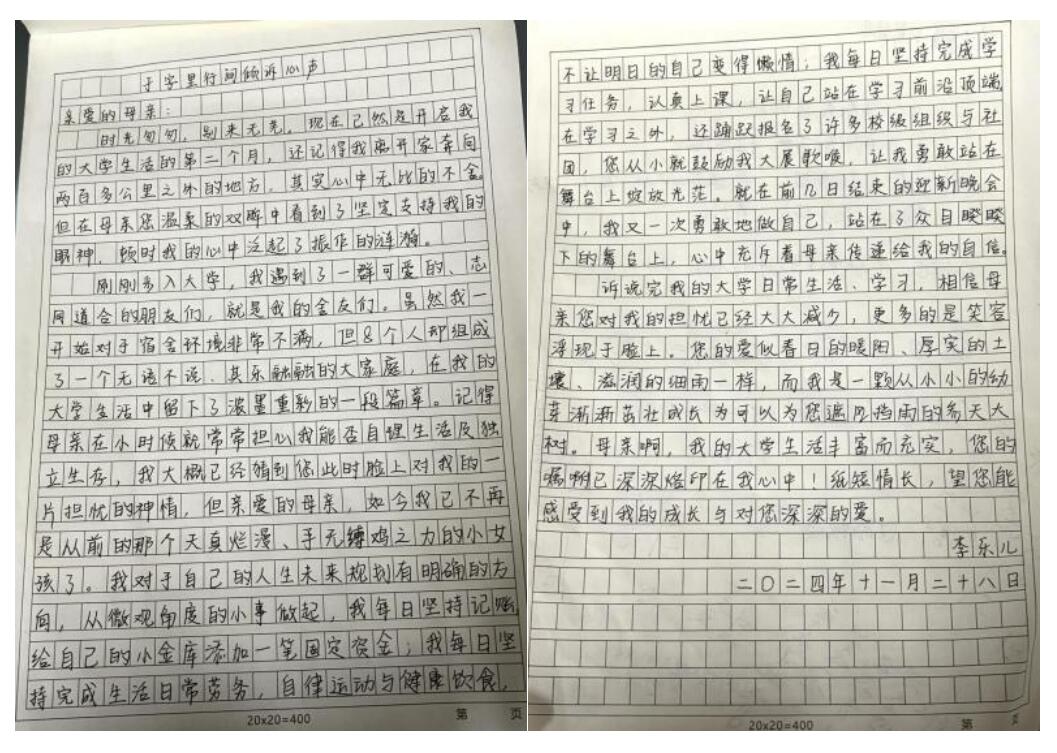 于字里行间倾诉心声
亲爱的母亲：
时光匆匆，别来无恙。现在已然是开启我
的大学生活的第二个月，还记得我离开家奔向
两百多公里之外的地方，其实心中无比的不舍。
但在母亲您温柔的双眸中看到了坚定支持我的
眼神，顿时我的心中泛起了振作的涟漪。
刚刚步入大学，我遇到了一群可爱的、志
同道合的朋友们，就是我的舍友们。虽然我一
开始对于宿舍环境非常不满，但8个人却组成
了一个无话不说、其乐融融的大家庭，在我的
大学生活中留下了浓墨重彩的一段篇章。记得
母亲在小时候就常常担心我能否自理生活及独
立生存，我大概已经猜到您此时脸上对我的一
片担忧的神情，但亲爱的母亲，如今我已不再
是从前的那个天真烂漫、手无缚鸡之力的小女
孩了。我对于自己的人生未来规划有明确的方
向，从微观角度的小事做起，我每日坚持记账，
给自己的小金库添加一笔固定资金；我每日坚
持完成生活日常劳务，自律运动与健康饮食，
20x20=400
第 页
不让明日的自己变得懒惰；我每日坚持完成学
习任务，认真上课，让自己站在学习前沿顶端。
在学习之外，还踊跃报名了许多校级组织与社
团，您从小就鼓励我大展歌喉，让我勇敢站在
舞台上绽放光茫。就在前几日结束的迎新晚会
中，我又一次勇敢地做自己，站在了众目睽睽
下的舞台上，心中充斥着母亲传递给我的自信。
诉说完我的大学日常生活、学习，相信母
亲您对我的担忧已经大大减少，更多的是笑容
浮现于脸上。您的爱似春日的暖阳、厚实的土
壤、滋润的细雨一样，而我是一颗从小小的幼
芽渐渐茁壮成长为可以为您遮风挡雨的参天大
树。母亲啊，我的大学生活丰富而充实，您的
嘱咐已深深烙印在我心中！纸短情长，望您能
感受到我的成长与对您深深的爱。
李乐儿
二〇二四年十一月二十八日
20x20=400
第